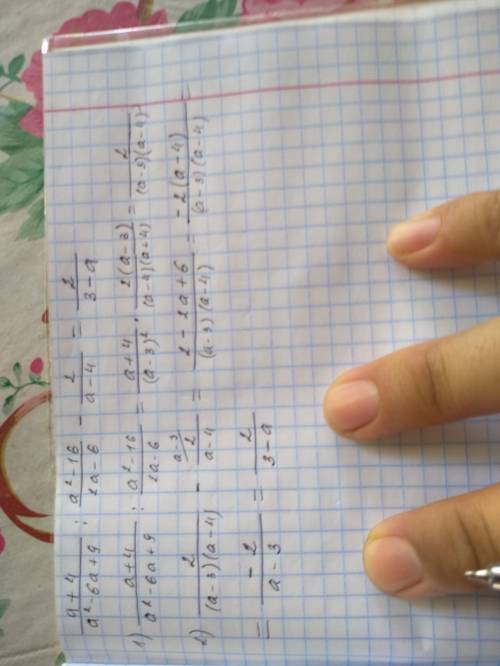 a+4/a²-6a+9 : a²-16/2a-6 - 2/a-4 = 2/3-a
1) a+4/a²-6a+9 : a²-16/2a-6 = a+4/(a-3)² · 2(a-3)/(a-4)(a+4) = 2/(a-3)(a-4)
2) 2/(a-3)(a-4) - a-3/ 2/a-4 = 2-2a+6/(a-3)(a-4) = -2(a-4)/(a-3)(a-4) =
= -2/a-3 = 2/3-a